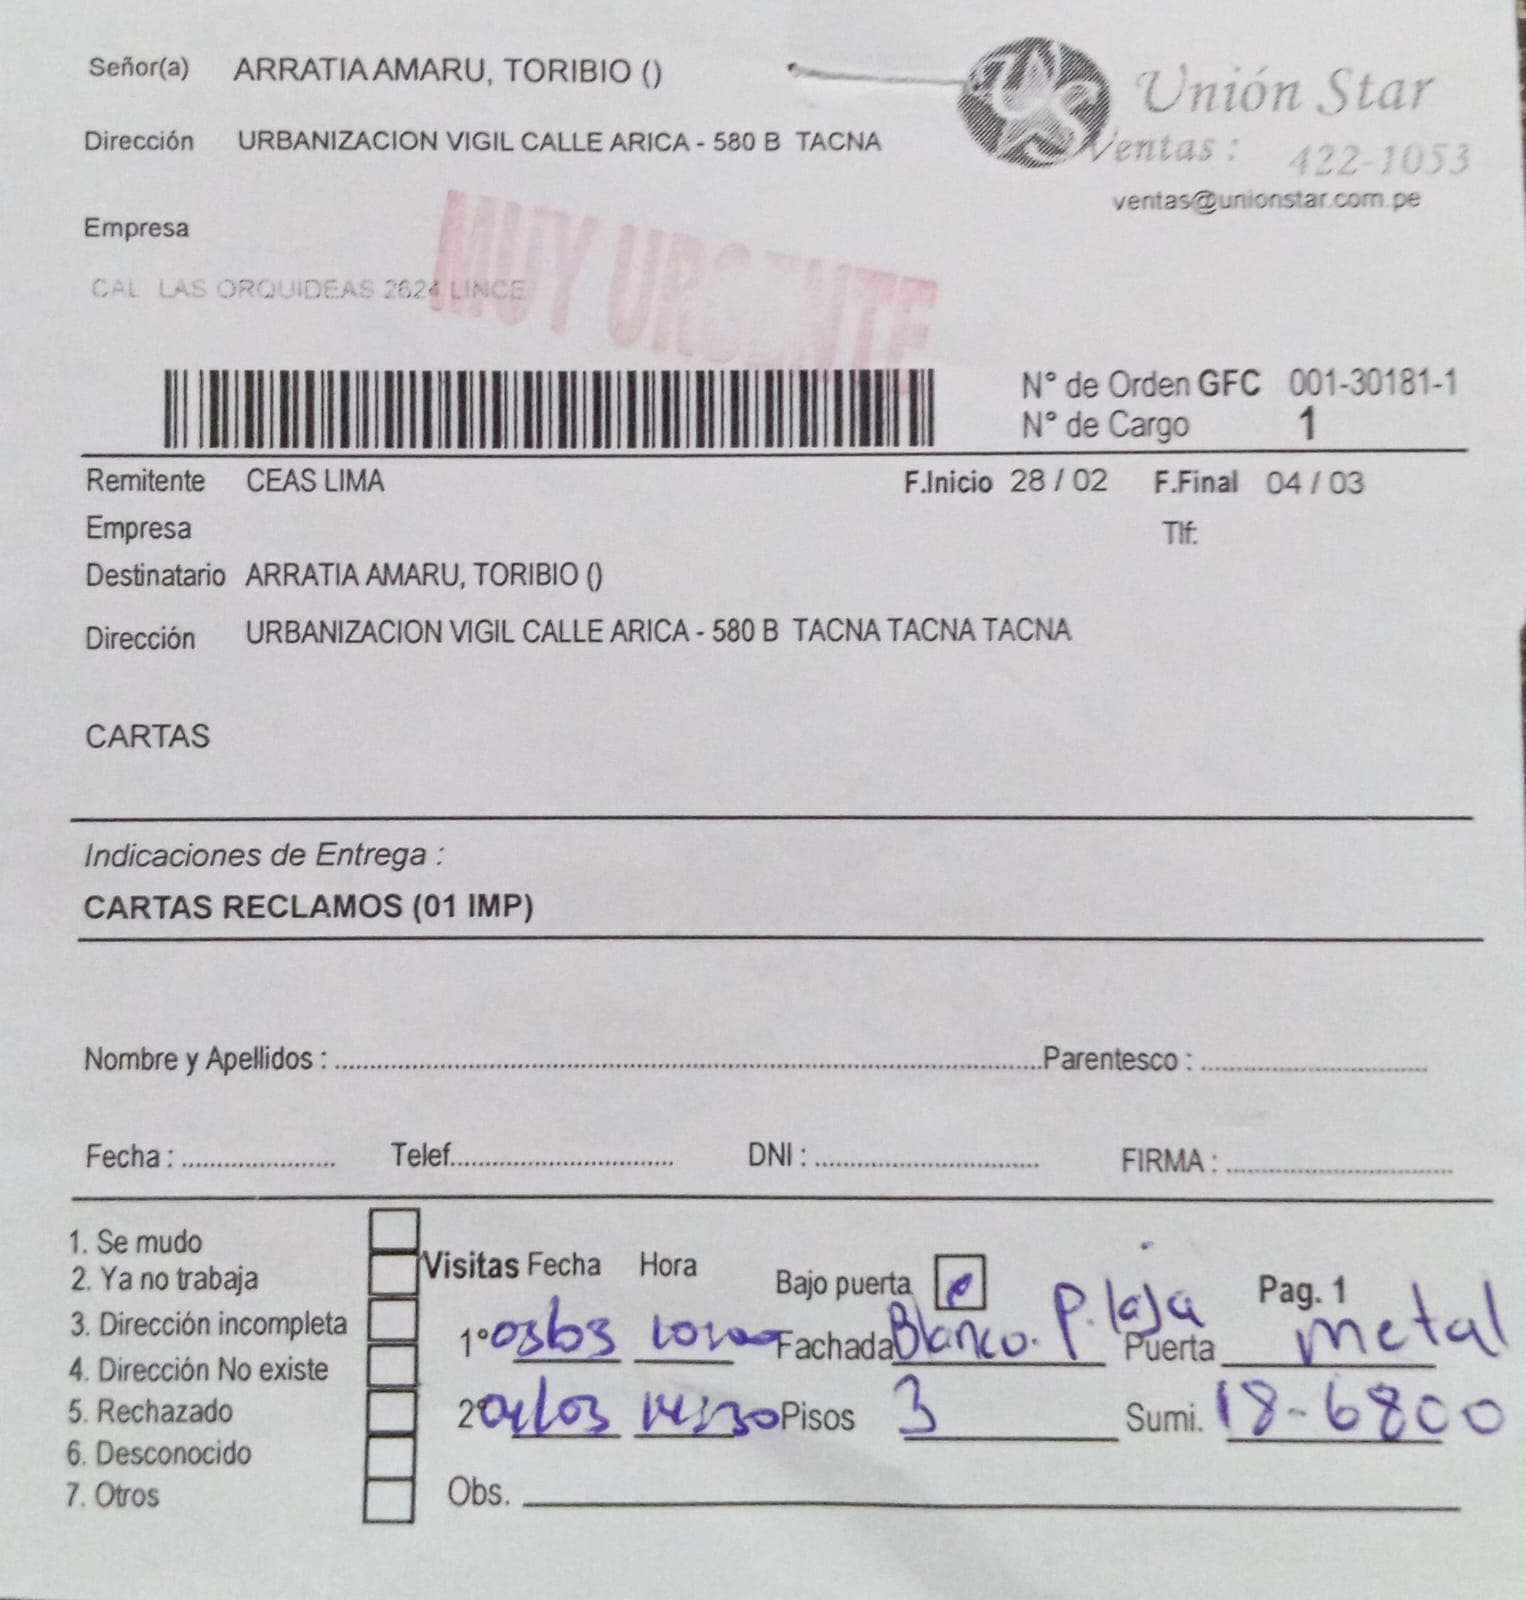 Señor(a) ARRATIA AMARU, TORIBIO ()
Unión Star
Dirección URBANIZACION VIGIL CALLE ARICA - 580 B TACNA
Ventas : 422-1053
ventas@unionstar.com.pe
Empresa
MUY URGENTE
CAL LAS ORQUIDEAS 2624 LINCE
N° de Orden GFC 001-30181-1
N° de Cargo 1
Remitente CEAS LIMA F.Inicio 28 / 02 F.Final 04 / 03
Empresa Tlf:
Destinatario ARRATIA AMARU, TORIBIO ()
Dirección URBANIZACION VIGIL CALLE ARICA - 580 B TACNA TACNA TACNA
CARTAS
Indicaciones de Entrega :
CARTAS RECLAMOS (01 IMP)
Nombre y Apellidos : Parentesco :
Fecha : Telef. DNI : FIRMA :
1. Se mudo
2. Ya no trabaja
3. Dirección incompleta
4. Dirección No existe
5. Rechazado
6. Desconocido
7. Otros
Visitas Fecha Hora Bajo puerta Pag. 1
1° 03/03 Fachada Blanco. P. laja Puerta metal
2° 04/03 14:30 Pisos 3 Sumi. 18-6800
Obs.